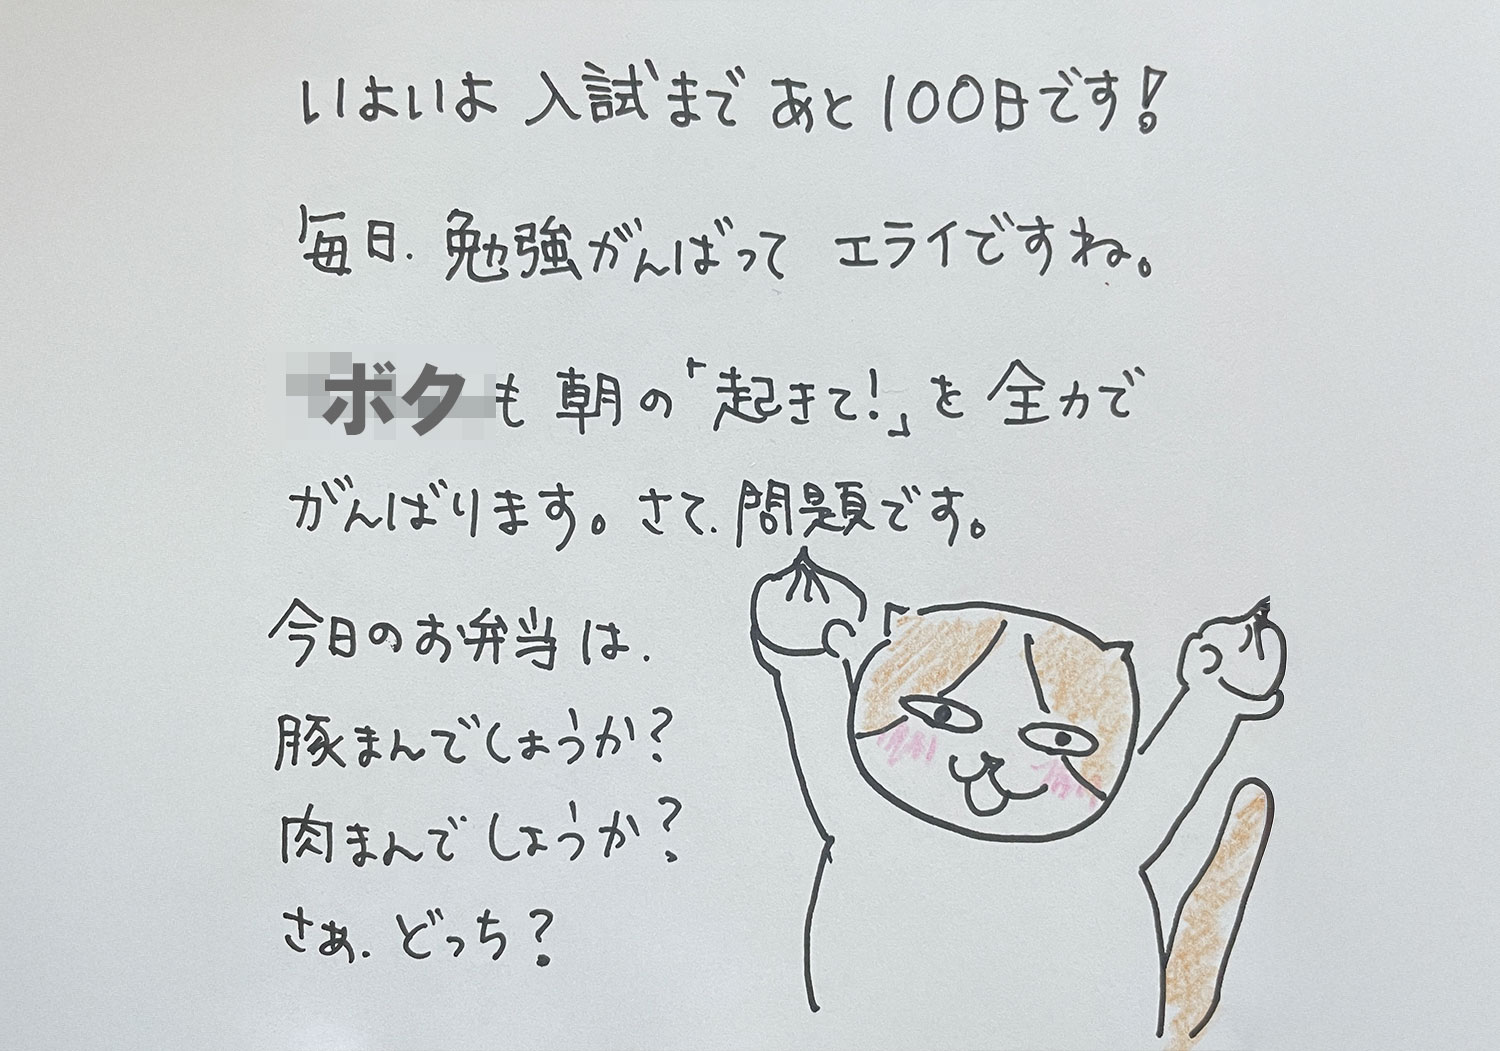 いよいよ 入試まで あと 100日です!
毎日、勉強がんばって エライですね。
ボクも 朝の「起きて!」を 全力で
がんばります。さて、問題です。
今日のお弁当は、
豚まんでしょうか?
肉まんでしょうか?
さぁ、どっち?